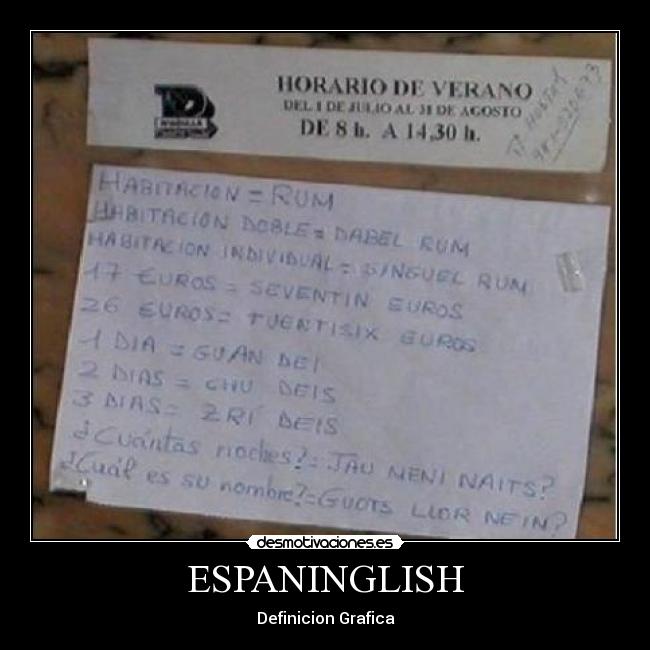 HORARIO DE VERANO
DEL 1 DE JULIO AL 31 DE AGOSTO
DE 8 h. A 14,30 h.
HABITACION = RUM
HABITACION DOBLE = DABEL RUM
HABITACION INDIVIDUAL = SINGUEL RUM
17 EUROS = SEVENTIN EUROS
26 EUROS = TUENTISIX EUROS
1 DIA = GUAN DEI
2 DIAS = CHU DEIS
3 DIAS = ZRI DEIS
¿Cuántas noches? = JAU MENI NAITS?
¿Cuál es su nombre? = GUOTS LLOR NEIN?
desmotivaciones.es
ESPANINGLISH
Definicion Grafica